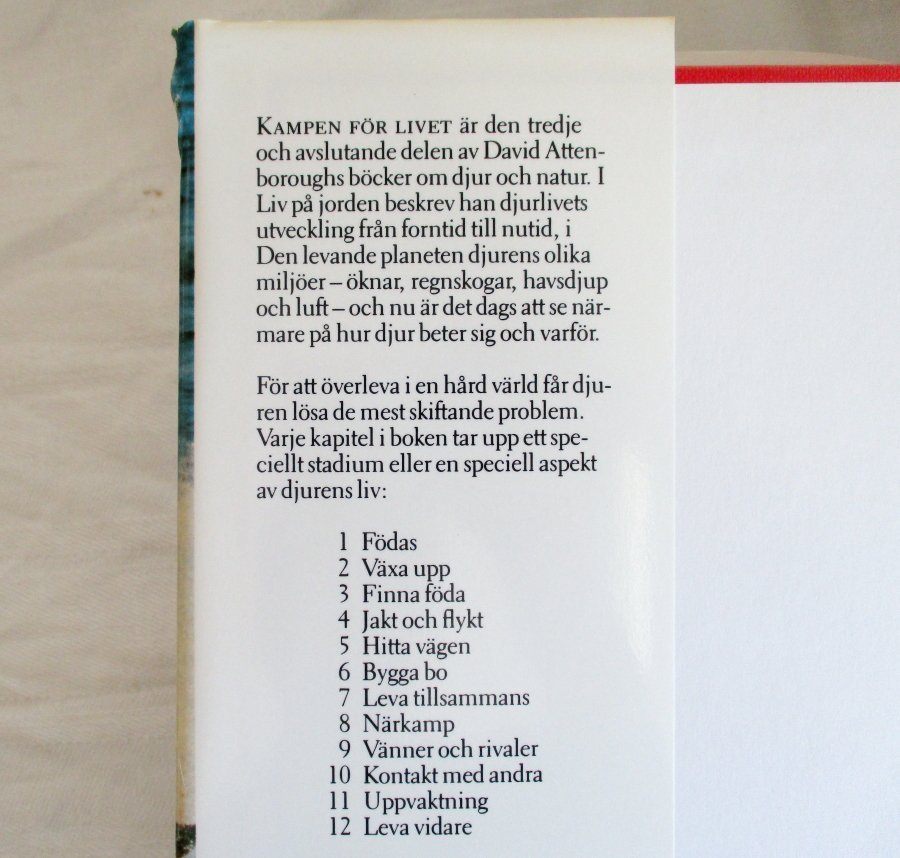 KAMPEN FÖR LIVET är den tredje
och avslutande delen av David Atten-
boroughs böcker om djur och natur. I
Liv på jorden beskrev han djurlivets
utveckling från forntid till nutid, i
Den levande planeten djurens olika
miljöer – öknar, regnskogar, havsdjup
och luft – och nu är det dags att se när-
mare på hur djur beter sig och varför.
För att överleva i en hård värld får dju-
ren lösa de mest skiftande problem.
Varje kapitel i boken tar upp ett spe-
ciellt stadium eller en speciell aspekt
av djurens liv:
1 Födas
2 Växa upp
3 Finna föda
4 Jakt och flykt
5 Hitta vägen
6 Bygga bo
7 Leva tillsammans
8 Närkamp
9 Vänner och rivaler
10 Kontakt med andra
11 Uppvaktning
12 Leva vidare